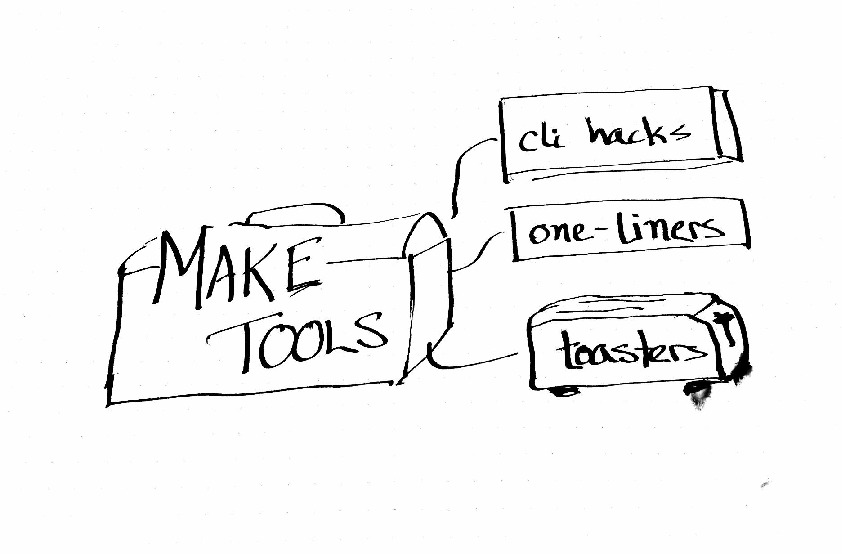 MAKE
TOOLS
cli hacks
one-liners
toasters